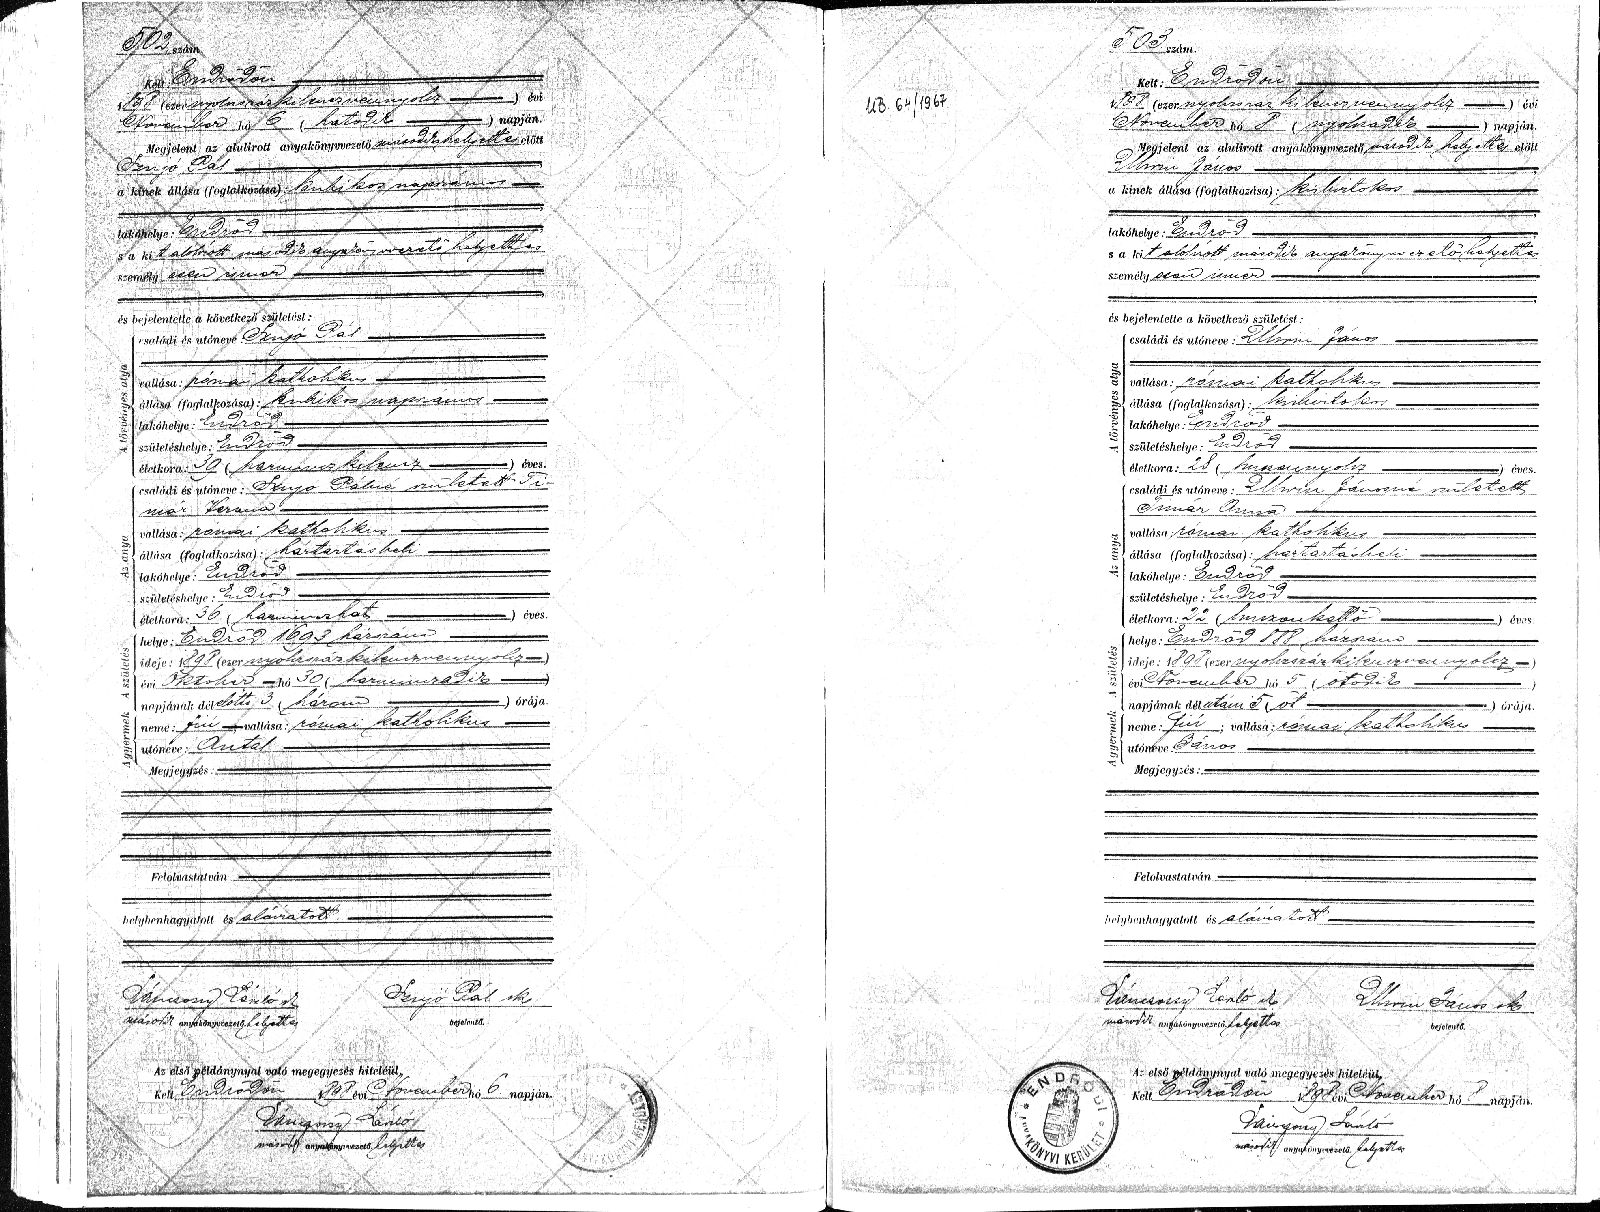 502 szám
Kelt Endrődön
1898 (ezernyolcszázkilenczvennyolcz ) évi
November hó 6 ( hatodik ) napján.
Megjelent az alulirott anyakönyvvezető második helyettes előtt
Pál
a kinek állása (foglalkozása): kubikos napszámos
lakóhelye: Endrőd
s a kit alólirott második anyakönyvvezető helyettes
személyesen ismer
és bejelentette a következő születést:
A törvényes atya
családi és utóneve Pál
vallása: római katholikus
állása (foglalkozása): kubikos napszámos
lakóhelye: Endrőd
születéshelye: Endrőd
életkora: 39 ( harminczkilencz ) éves.
Az anya
családi és utóneve: Pálné született Ti-
már
vallása: római katholikus
állása (foglalkozása): háztartásbeli
lakóhelye: Endrőd
születéshelye: Endrőd
életkora: 36 ( harminczhat ) éves.
A születés
helye: Endrőd 1693 házszám
ideje: 1898 (ezernyolcszázkilenczvennyolcz )
évi Oktober hó 30 ( harminczadik )
napjának délelőtti 3 ( három ) órája.
A gyermek
neme: fiú vallása: római katholikus
utóneve: Antal
Megjegyzés:
Felolvastatván
helybenhagyatott és aláiratott
László
Pál
második anyakönyvvezető helyettes
bejelentő.
Az első példánynyal való megegyezés hiteléül,
Kelt Endrődön 1898 évi November hó 6 napján.
László
második anyakönyvvezető helyettes
UB. 64/1967
503 szám.
Kelt: Endrődön
1898 (ezernyolcszázkilenczvennyolcz ) évi
November hó 8 ( nyolczadik ) napján.
Megjelent az alulirott anyakönyvvezető második helyettes előtt
János
a kinek állása (foglalkozása): kisbirtokos
lakóhelye: Endrőd
s a kit alólirott második anyakönyvvezető helyettes
személyesen ismer
és bejelentette a következő születést:
A törvényes atya
családi és utóneve: János
vallása: római katholikus
állása (foglalkozása): kisbirtokos
lakóhelye: Endrőd
születéshelye: Endrőd
életkora: 28 ( huszonnyolcz ) éves.
Az anya
családi és utóneve: Jánosné született
vallása római katholikus
állása (foglalkozása): háztartásbeli
lakóhelye: Endrőd
születéshelye: Endrőd
életkora: 22 ( huszonkettő ) éves
A születés
helye: Endrőd házszám
ideje: 1898 (ezernyolcszázkilenczvennyolcz )
évi November hó 5 ( ötödik )
napjának délutáni 5 ( öt ) órája.
A gyermek
neme: fiú ; vallása: római katholikus
utóneve János
Megjegyzés:
Felolvastatván
helybenhagyatott és aláiratott
László
János
második anyakönyvvezető helyettes
bejelentő.
Az első példánynyal való megegyezés hiteléül,
Kelt Endrődön 1898 évi November hó 8 napján.
László
második anyakönyvvezető helyettes
ENDRŐDI
ANYAKÖNYVI KERÜLET